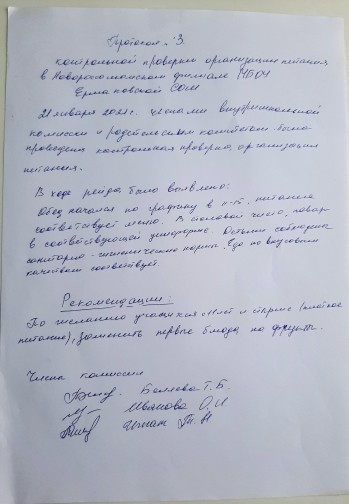 Протокол №3.
контрольной проверки организации питания
в Новорогожинском филиале МБОУ
Ермаковской СОШ
21 января 2021 г. членами внутришкольной
комиссии и родительским комитетом была
проведена контрольная проверка организации
питания.
В ходе рейда было выявлено:
Обед начался по графику в питание
соответствует меню. В столовой чисто, повар
в соответствующей униформе. Остальн соблюдены
санитарно - гигиенические нормы. Еда по вкусовым
качествам соответствует.
Рекомендации:
По желанию учащихся 11 лет и старше (платное
питание), заменить первые блюда на фрукты.
Члены комиссии
Беляева Т. Б.
Иванова О. И.
Т. Н.